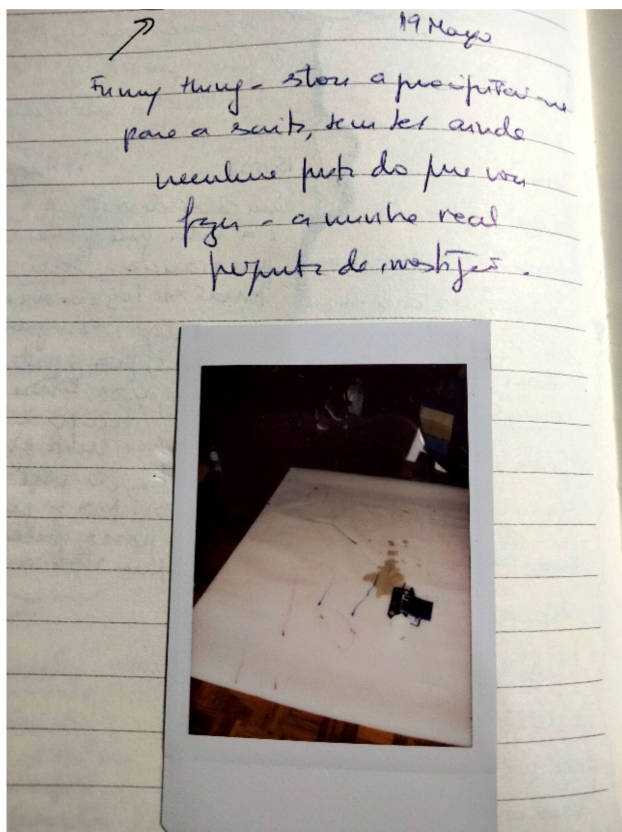 19 Mayo
Funny thing - estou a precipitar-me
para a escrita, sem ter ainda
nenhuma pista do que vou
fazer - a minha real
pergunta de investigação.